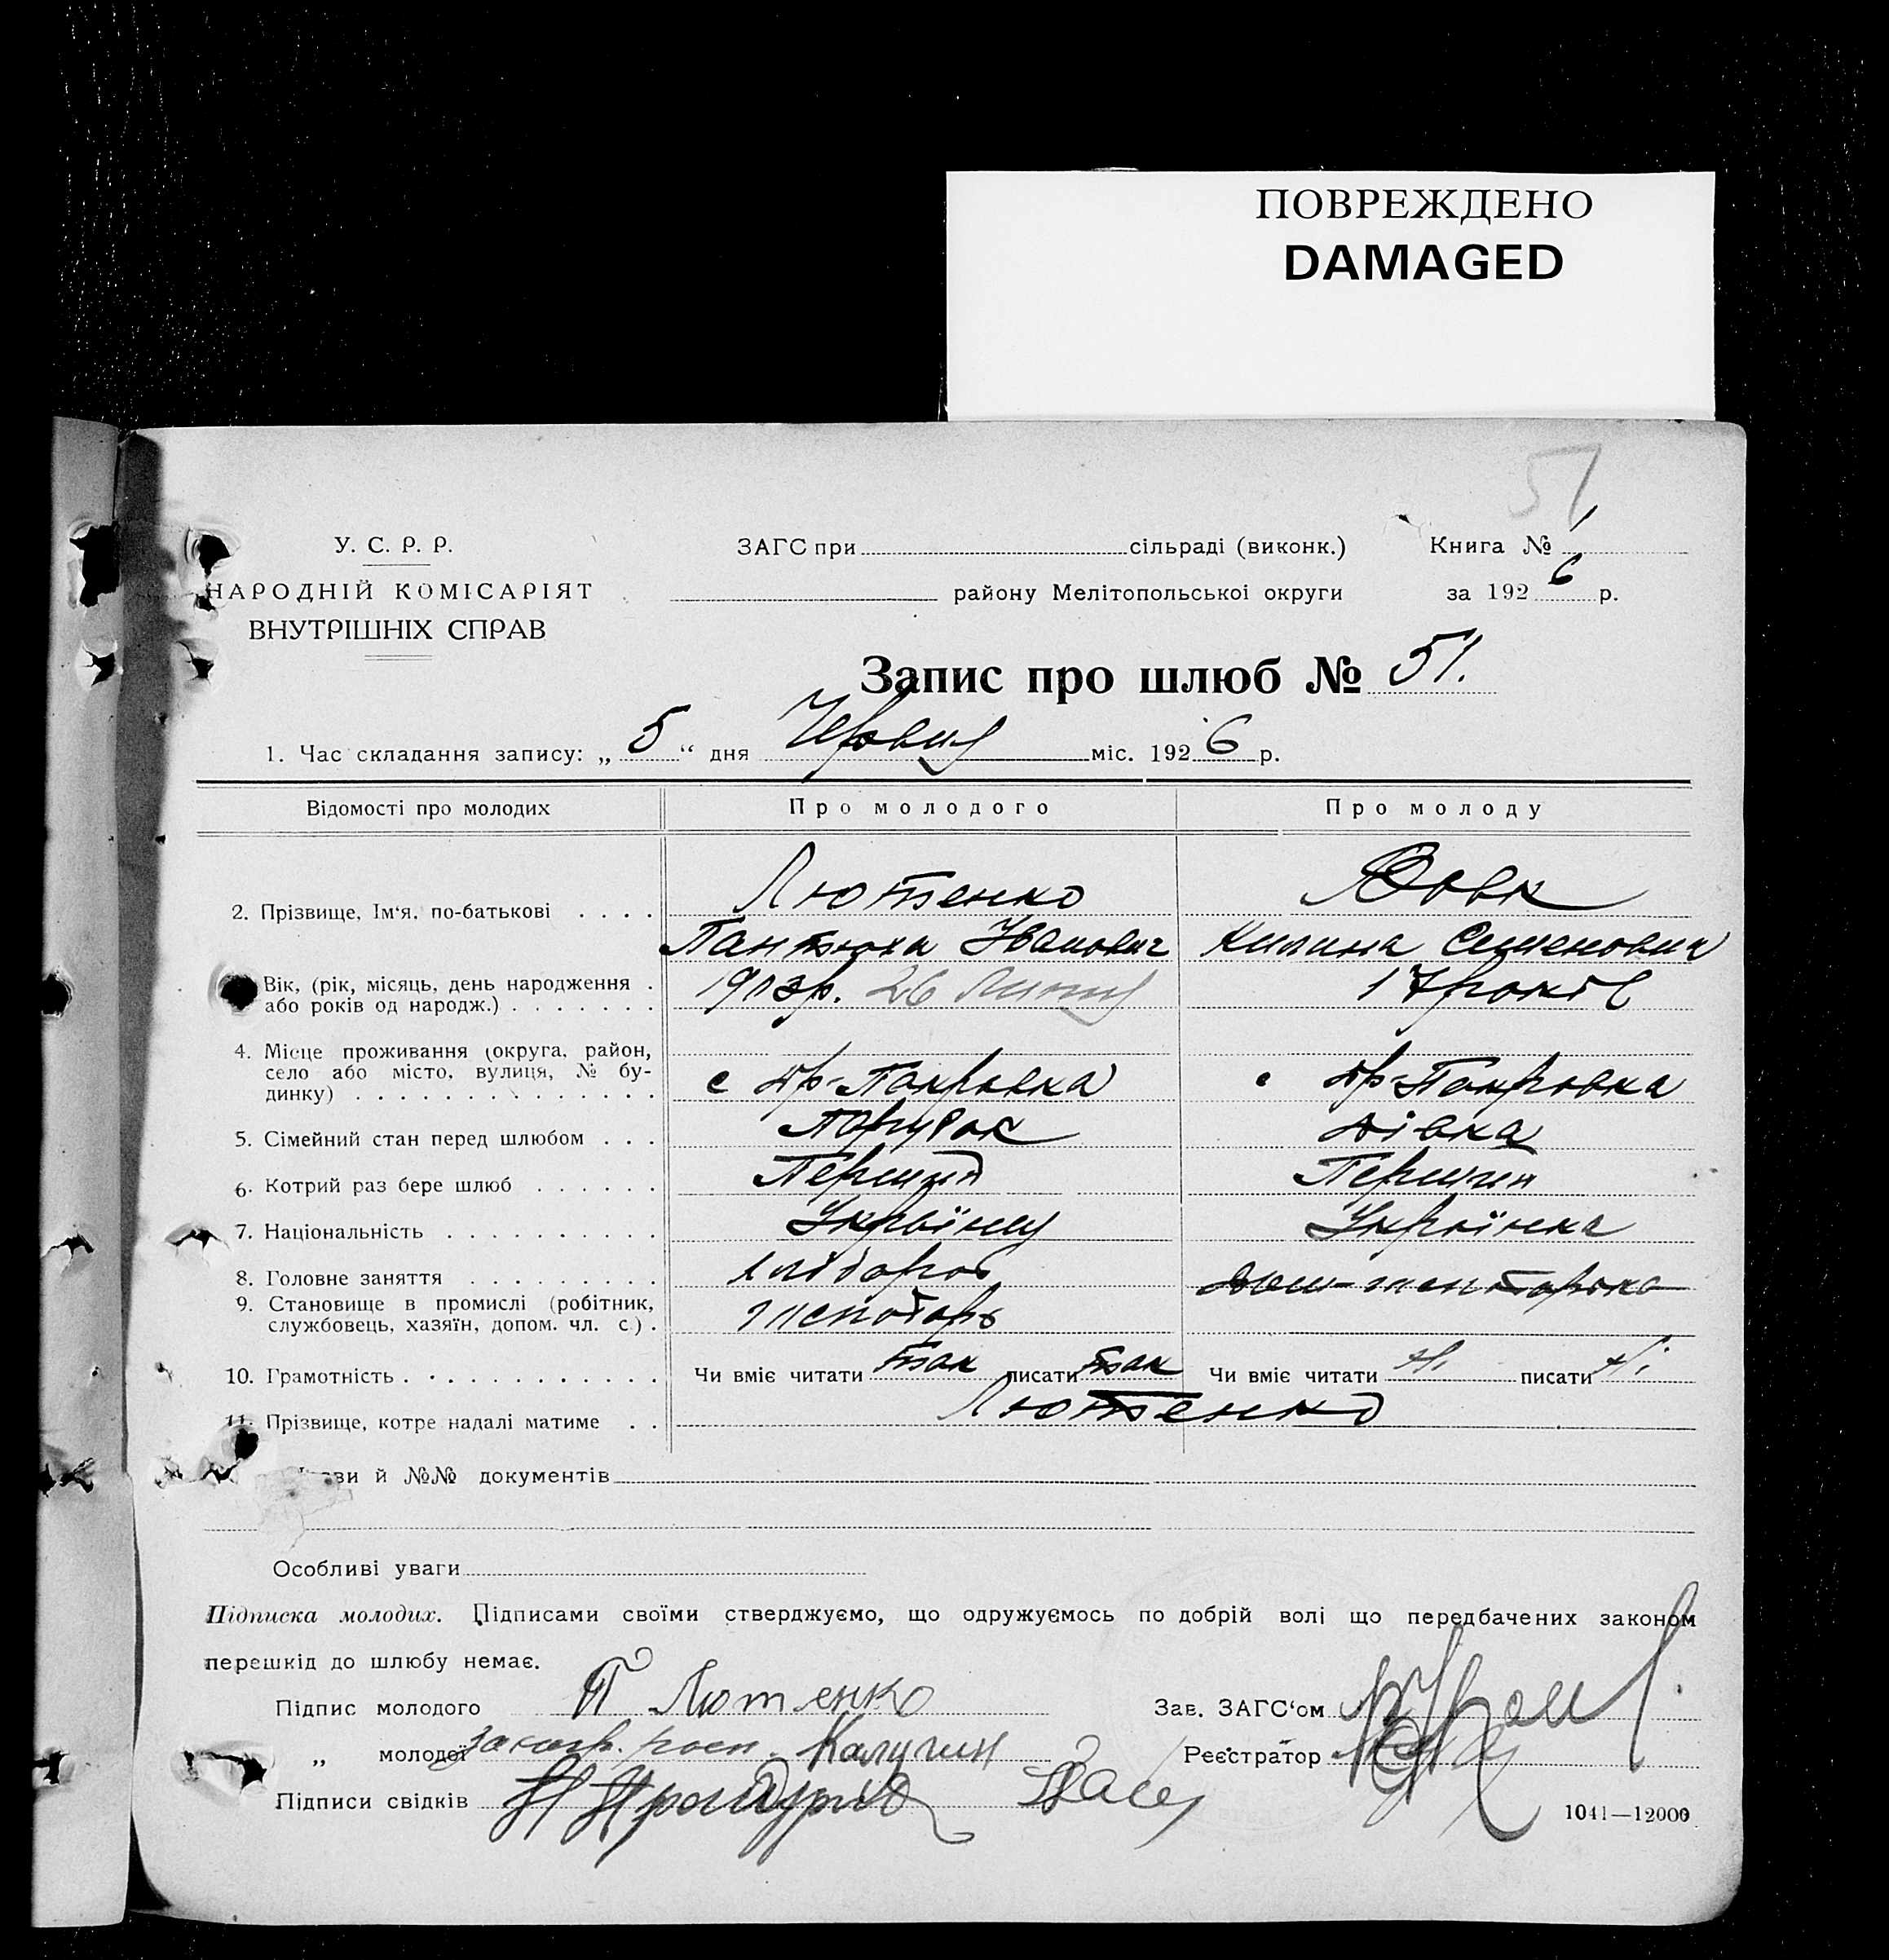 ПОВРЕЖДЕНО
DAMAGED
51
У. С. Р. Р.
НАРОДНІЙ КОМІСАРІЯТ
ВНУТРІШНІХ СПРАВ
ЗАГС при сільраді (виконк.)
району Мелітопольської округи
Книга № 1
за 1926 р.
Запис про шлюб № 51.
1. Час складання запису: „5“ дня міс. 1926 р.
Відомості про молодих Про молодого Про молоду
2. Прізвище, Ім‘я, по-батькові . . . . Лютенко Вовк
Іванович Килина Семеновна
Вік, (рік, місяць, день народження . 26 17 років
або років од народж.) . . . . . . .
4. Місце проживання (округа, район,
село або місто, вулиця, № бу-
динку) . . . . . . . . . . . . . . с Др-Покровка с Др-Покровка
5. Сімейний стан перед шлюбом . . . Парубок дівка
6. Котрий раз бере шлюб . . . . . . Перший Перший
7. Національність . . . . . . . . . . Українец Українка
8. Головне заняття . . . . . . . . . хлібороб
9. Становище в промислі (робітник,
службовець, хазяїн, допом. чл. с.) .
10. Грамотність . . . . . . . . . . . . Чи вміє читати так писати так Чи вміє читати ні писати ні
11. Прізвище, котре надалі матиме . . Лютенко
й №№ документів
Особливі уваги
Підписка молодих. Підписами своїми стверджуємо, що одружуємось по добрій волі що передбачених законом
перешкід до шлюбу немає.
Підпис молодого П Лютенко Зав. ЗАГС‘ом
„ молодої Калугин Реєстратор
Підписи свідків
1041—12000